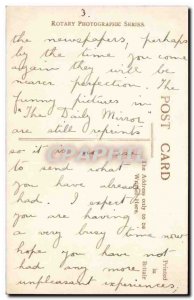 3.
ROTARY PHOTOGRAPHIC SERIES.
the newspapers, perhaps
by the time you come
again they will be
nearer perfection. The
funny pictures in
"The Daily Mirror"
are still reprints
so it is no use
to send what
you have already
had. I expect
you are having
a very busy time now
hope you have not
had any more
unpleasant experiences,
POST CARD
The Address only to be
Written here.
Printed
British
CPAPHIL